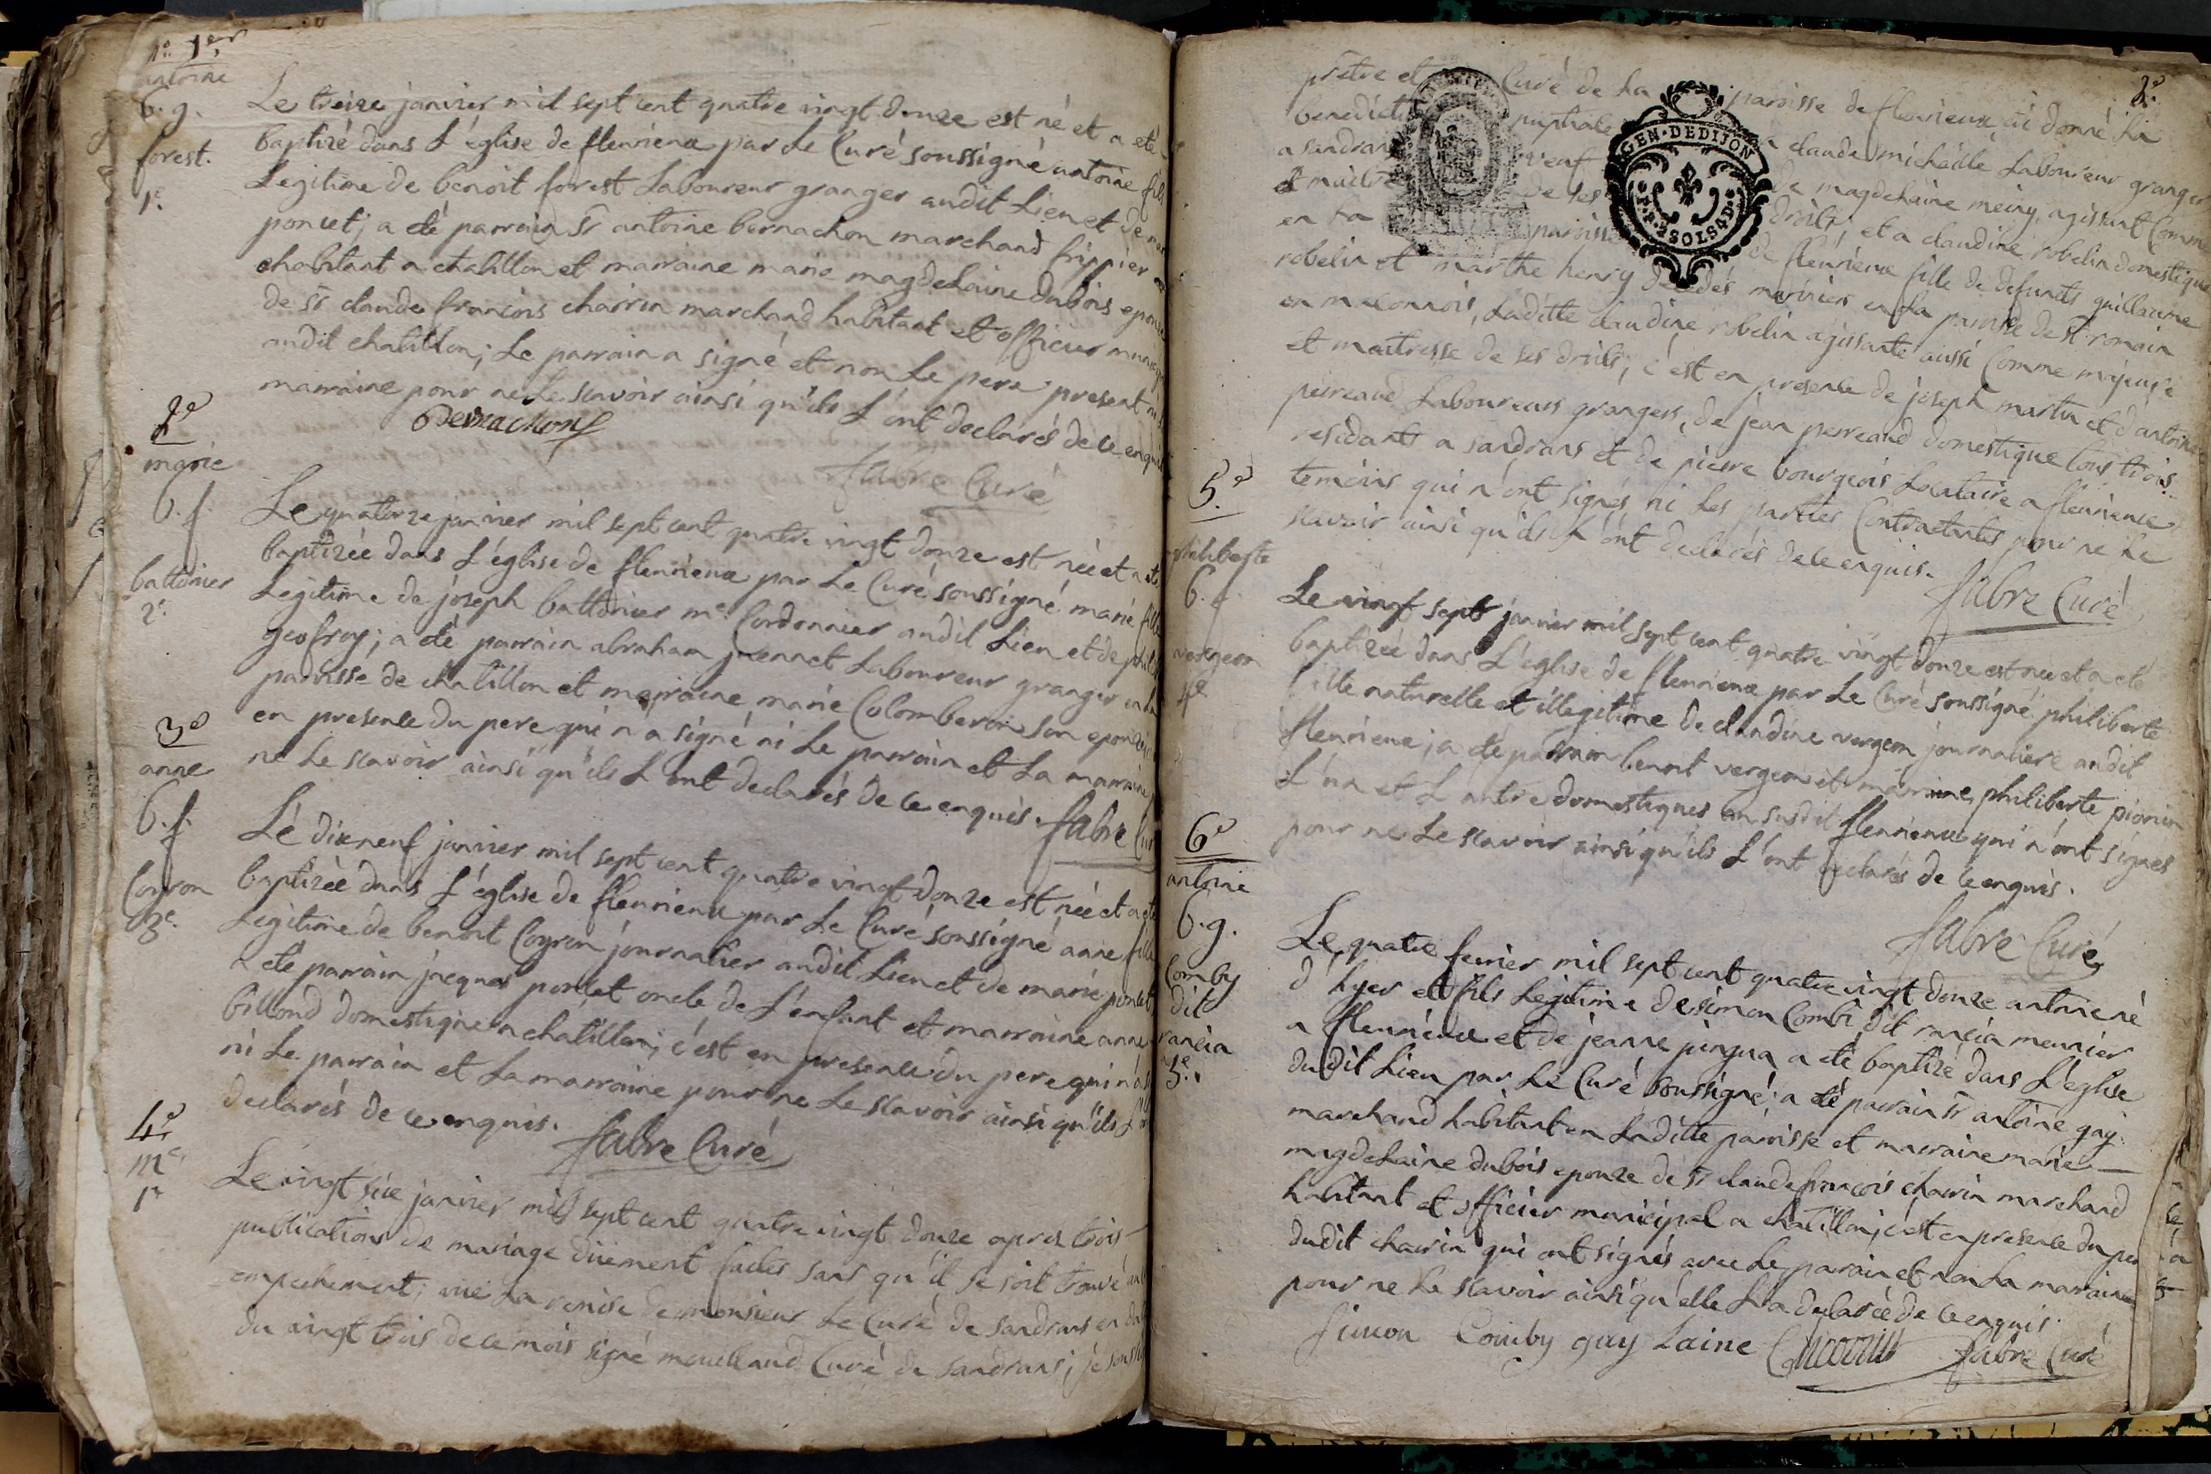 n.° 1.er
antoine
b. g.
forest.
1.e
Le treize janvier mil sept cent quatre vingt douze est né et a eté
baptizé dans L'église de fleurieux par Le Curé soussigné antoine fils
Legitime de benoit forest Laboureur granger audit Lieu et de
poncet; a eté parrain Sr antoine bernachon marchand frippier
habitant a chatillon et marraine marie magdelaine dubois epouze
de Sr claude françois charrin marchand habitant et officier
audit chatillon; Le parrain a signé et non Le pere present
marraine pour ne Le scavoir ainsi qu'ils L'ont declarés de ce enquis
Bernachon
fabre Curé
2.e
marie
b. f.
battonier
2.e
Le quatorze janvier mil sept cent quatre vingt douze est née et a eté
baptizée dans L'église de fleurieux par Le Curé soussigné marie fille
Legitime de joseph battonier me. Cordonnier audit Lieu et de
geofroy; a eté parrain abraham juennet Laboureur granger en La
paroisse de chatillon et marraine marie Colomberon son epouze
en presence du pere qui n'a signé ni Le parrain et La marraine
ne Le scavoir ainsi qu'ils L'ont declarés de ce enquis. fabre Curé
3.e
anne
b. f.
Coyron
3.e
Le dixneuf janvier mil sept cent quatre vingt douze est née et a eté
baptizée dans L'église de fleurieux par Le Curé soussigné anne fille
Legitime de benoit Coyron journalier audit Lieu et de marie poncet
a eté parrain jacques poncet oncle de L'enfant et marraine anne
billoud domestique a chatillon; c'est en presence du pere qui n'a
ni Le parrain et La marraine pour ne Le scavoir ainsi qu'ils L'ont
declarés de ce enquis. fabre Curé
4.e
m.e
1.r
Le vingt six janvier mil sept cent quatre vingt douze apres trois
publications de mariage duement faites sans qu'il se soit trouvé
empechement; vue La remise de monsieur Le Curé de sandrans en
du vingt trois de ce mois signé Curé de sandrans; je
2.e
prêtre et Curé de La paroisse de fleurieux ai donné La
benediction nuptiale a claude michaille Laboureur granger
a sandrans veuf de magdelaine meiny agissant Comme
et maître de ses droits, et a claudine robelin domestique
en La paroisse de fleurieux fille de defunts guillaume
robelin et marthe henry decedés mariniers en La paroisse de st romain
en maconnois, Laditte claudine robelin agissante aussi Comme majeure
et maitresse de ses droits; c'est en presence de joseph martin et d'antoine
perreaud Laboureurs grangers, de jean perreaud domestique tous trois
residants a sandrans et de pierre bourgeois Locataire a fleurieux
temoins qui n'ont signés ni Les parties Contractantes pour ne Le
scavoir ainsi qu'ils L'ont declarés de ce enquis.
fabre Curé
5.e
philiberte
b. f.
vergeon
4.e
Le vingt sept janvier mil sept cent quatre vingt douze est née et a eté
baptizée dans L'église de fleurieux par Le Curé soussigné philiberte
fille naturelle et illegitime de claudine vergeon journaliere audit
fleurieux; a eté parrain benoit vergeon et marraine philiberte pionin
L'un et L'autre domestiques au susdit fleurieux qui n'ont signés
pour ne Le scavoir ainsi qu'ils L'ont declarés de ce enquis.
fabre Curé
6.e
antoine
b. g.
Comby
dit
rancia
5.e
Le quatre fevrier mil sept cent quatre vingt douze antoine né
d'hyer et fils Legitime de simon Combi dit rancia meunier
a fleurieux et de jeanne a eté baptizé dans L'église
dudit Lieu par Le Curé soussigné; a eté parrain Sr antoine gay
marchand habitant en Laditte paroisse et marraine marie
magdelaine dubois epouze de Sr claude françois charrin marchand
habitant et officier municipal a chatillon; c'est en presence du pere
dudit charrin qui ont signés avec Le parrain et non La marraine
pour ne Le scavoir ainsi qu'elle L'a declarée de ce enquis.
Simon Comby gay Laine fabre Curé
GEN·DE DIJON